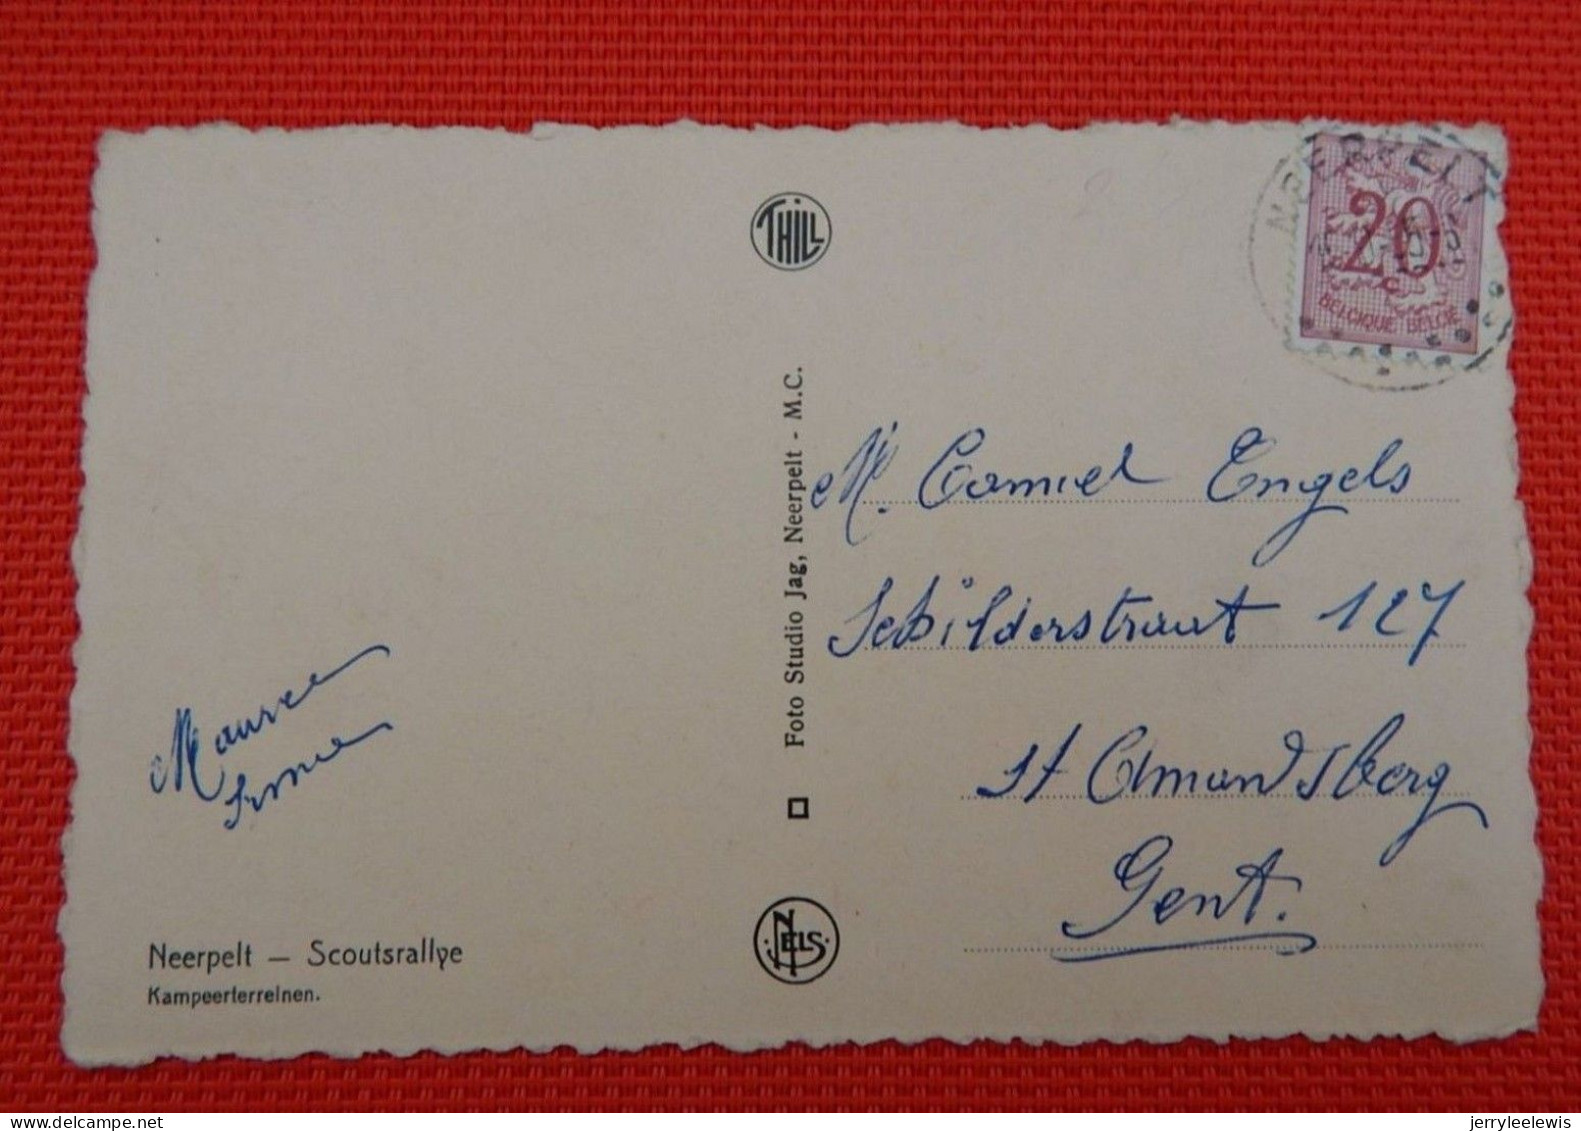 THILL
NEERPELT
20
C
BELGIQUE BELGIË
Foto Studio Jag, Neerpelt - M.C.
Mr. Camiel Engels
Schilderstraat 127
St Amandsberg
Gent.
Maurice
Irene
Neerpelt — Scoutsrallye
Kampeerterreinen.
NELS
delcampe.net
jerryleelewis